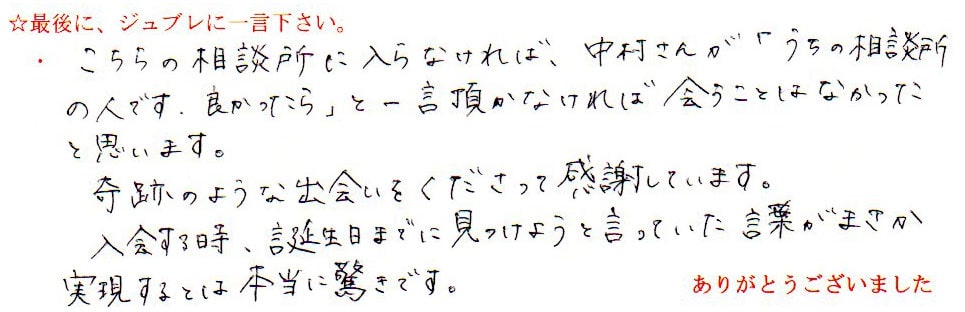 ☆最後に、ジュブレに一言下さい。
・こちらの相談所に入らなければ、中村さんが「うちの相談所
の人です．良かったら」と一言頂かなければ会うことはなかった
と思います。
奇跡のような出会いをくださって感謝しています。
入会する時、誕生日までに見つけようと言っていた言葉がまさか
実現するとは本当に驚きです。
ありがとうございました